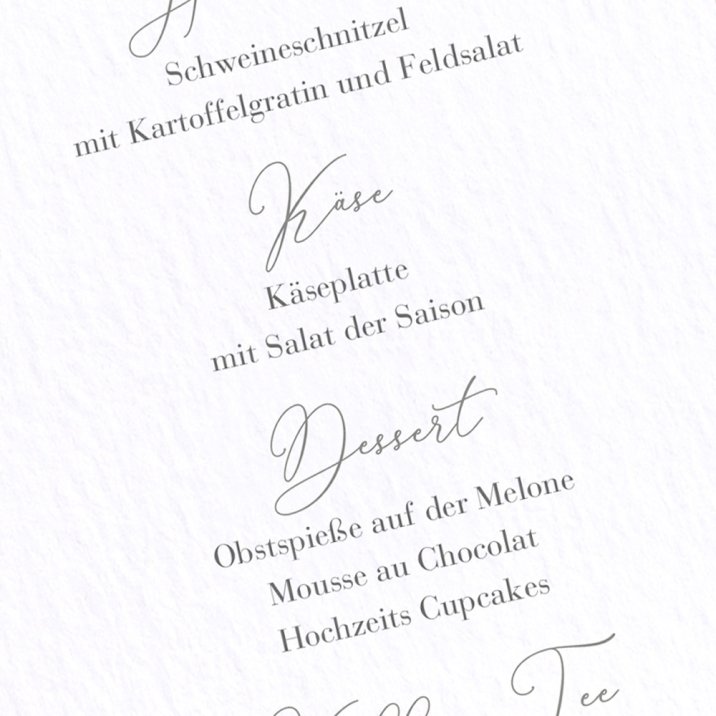 Schweineschnitzel
mit Kartoffelgratin und Feldsalat
Käse
Käseplatte
mit Salat der Saison
Dessert
Obstspieße auf der Melone
Mousse au Chocolat
Hochzeits Cupcakes
Tee